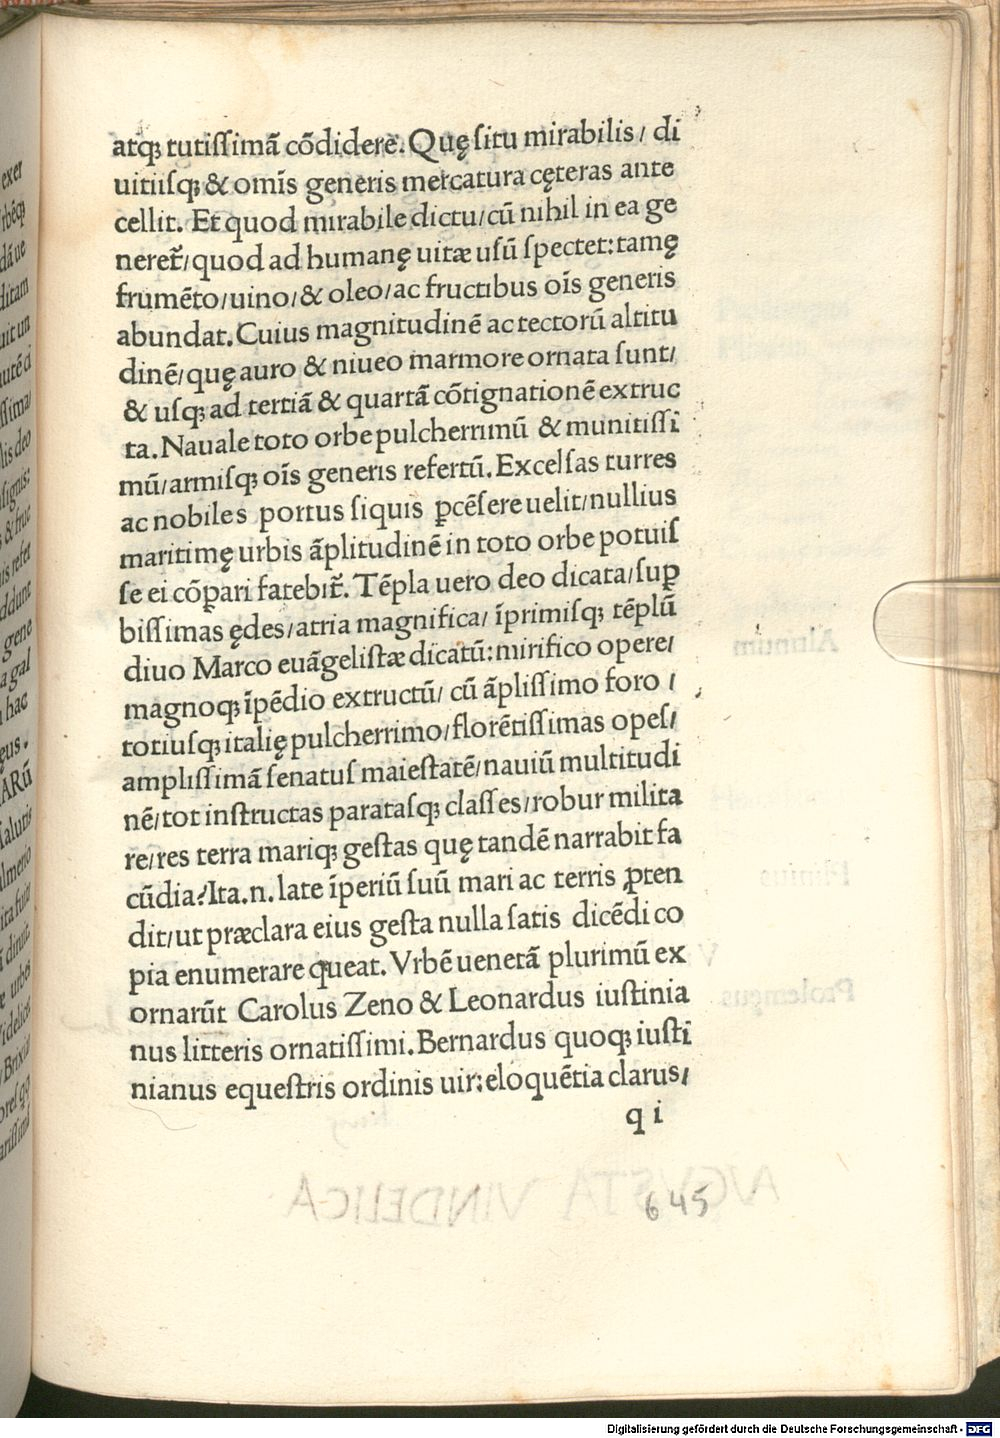 atq; tutissimã cõdidere. Quę situ mirabilis/ di
uitiisq; & omis̃ generis mercatura cęteras ante
cellit. Et quod mirabile dictu/cũ nihil in ea ge
neret̃/quod ad humanę uitæ usũ spectet: tamę
frumẽto/uino/& oleo/ac fructibus ois̃ generis
abundat. Cuius magnitudinẽ ac tectorũ altitu
dinẽ/quę auro & niueo marmore ornata sunt/
& usq; ad tertiã & quartã cõtignationẽ extruc
ta. Nauale toto orbe pulcherrimũ & munitissi
mũ/armisq; ois̃ generis refertũ. Excelsas turres
ac nobiles portus siquis ꝑcẽsere uelit/nullius
maritimę urbis ãplitudinẽ in toto orbe potuis
se ei cõꝑari fatebit̃. Tẽpla uero deo dicata/suꝑ
bissimas ędes/atria magnifica/ ĩprimisq; tẽplũ
diuo Marco euãgelistæ dicatũ: mirifico opere/
magnoq; ĩpẽdio extructũ/ cũ ãplissimo foro /
totiusq; italię pulcherrimo/florẽtissimas opes/
amplissimã senatus maiestatẽ/nauiũ multitudi
nẽ/tot instructas paratasq; classes/robur milita
re/res terra mariq; gestas quę tandẽ narrabit fa
cũdia? Ita.n. late ĩperiũ suũ mari ac terris ꝓten
dit/ut præclara eius gesta nulla satis dicẽdi co
pia enumerare queat. Vrbẽ uenetã plurimũ ex
ornarũt Carolus Zeno & Leonardus iustinia
nus litteris ornatissimi. Bernardus quoq; iusti
nianus equestris ordinis uir: eloquẽtia clarus/
q i
645
Digitalisierung gefördert durch die Deutsche Forschungsgemeinschaft - DFG